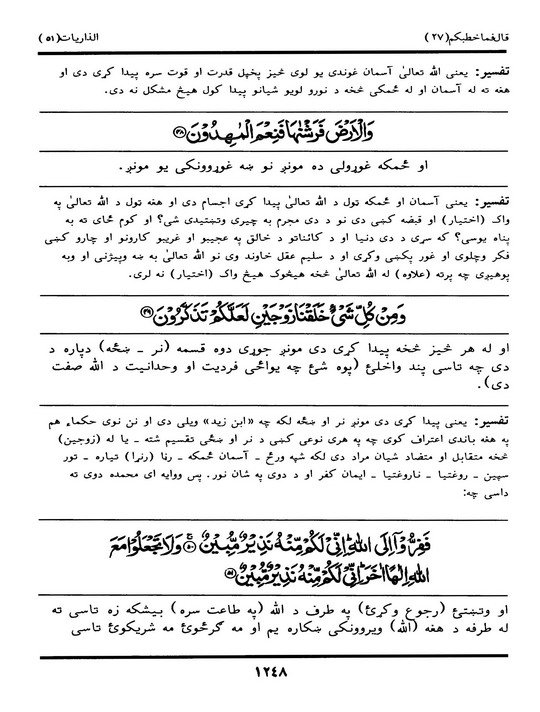 قال فما خطبکم (۲۷) الذاریات (۵۱)
تفسیر: یعنی الله تعالیٰ آسمان غوندی یو لوی څیز پخپل قدرت او قوت سره پیدا کړی دی او
هغه ته له آسمان او له ځمکی څخه د نورو لویو شیانو پیدا کول هیڅ مشکل نه دی.
وَالْاَرْضَ فَرَشْنٰهَا فَنِعْمَ الْمٰهِدُوْنَ ﴿۴۸﴾
او ځمکه غوړولی ده مونږ نو ښه غوړوونکی یو مونږ.
تفسیر: یعنی آسمان او ځمکه ټول د الله تعالیٰ پیدا کړی اجسام دی او هغه ټول د الله تعالیٰ په
واک (اختیار) او قبضه کښی دی نو د دی مجرم به چیری وتښتیدی شی؟ او کوم ځای ته به
پناه یوسی؟ که سړی د دی دنیا او د کائناتو د خالق په عجیبو او غریبو کارونو او چارو کښی
فکر وچلوی او غور پکښی وکړی او د سلیم عقل خاوند وی نو الله تعالیٰ به ښه وپیژنی او وبه
پوهیږی چه پرته (علاوه) له الله تعالیٰ څخه هیڅوک هیڅ واک (اختیار) نه لری.
وَمِنْ كُلِّ شَیْءٍ خَلَقْنَا زَوْجَیْنِ لَعَلَّكُمْ تَذَكَّرُوْنَ ﴿۴۹﴾
او له هر څیز څخه پیدا کړی دی مونږ جوړی دوه قسمه (نر ـ ښځه) دپاره د
دی چه تاسی پند واخلئ (پوه شئ چه یوائځی فردیت او وحدانیت د الله صفت
دی).
تفسیر: یعنی پیدا کړی دی مونږ نر او ښځه لکه چه «ابن زید» ویلی دی او نن نوی حکماء هم
په هغه باندی اعتراف کوی چه په هری نوعی کښی د نر او ښځی تقسیم شته ـ یا له (زوجین)
څخه متقابل او متضاد شیان مراد دی لکه شپه ورځ ـ آسمان ځمکه ـ رڼا (رنرا) تیاره ـ تور
سپین ـ روغتیا ـ ناروغتیا ـ ایمان کفر او د دوی په شان نور. پس ووایه ای محمده دوی ته
داسی چه:
فَفِرُّوْۤا اِلَی اللّٰهِ اِنِّیْ لَكُمْ مِّنْهُ نَذِیْرٌ مُّبِیْنٌ ﴿۵۰﴾ وَلَا تَجْعَلُوْا مَعَ
اللّٰهِ اِلٰهًا اٰخَرَ اِنِّیْ لَكُمْ مِّنْهُ نَذِیْرٌ مُّبِیْنٌ ﴿۵۱﴾
او وتښتئ (رجوع وکړئ) په طرف د الله (په طاعت سره) بیشکه زه تاسی ته
له طرفه د هغه (الله) ویروونکی ښکاره یم او مه ګرځوئ مه شریکوئ تاسی
۱۲٤۸